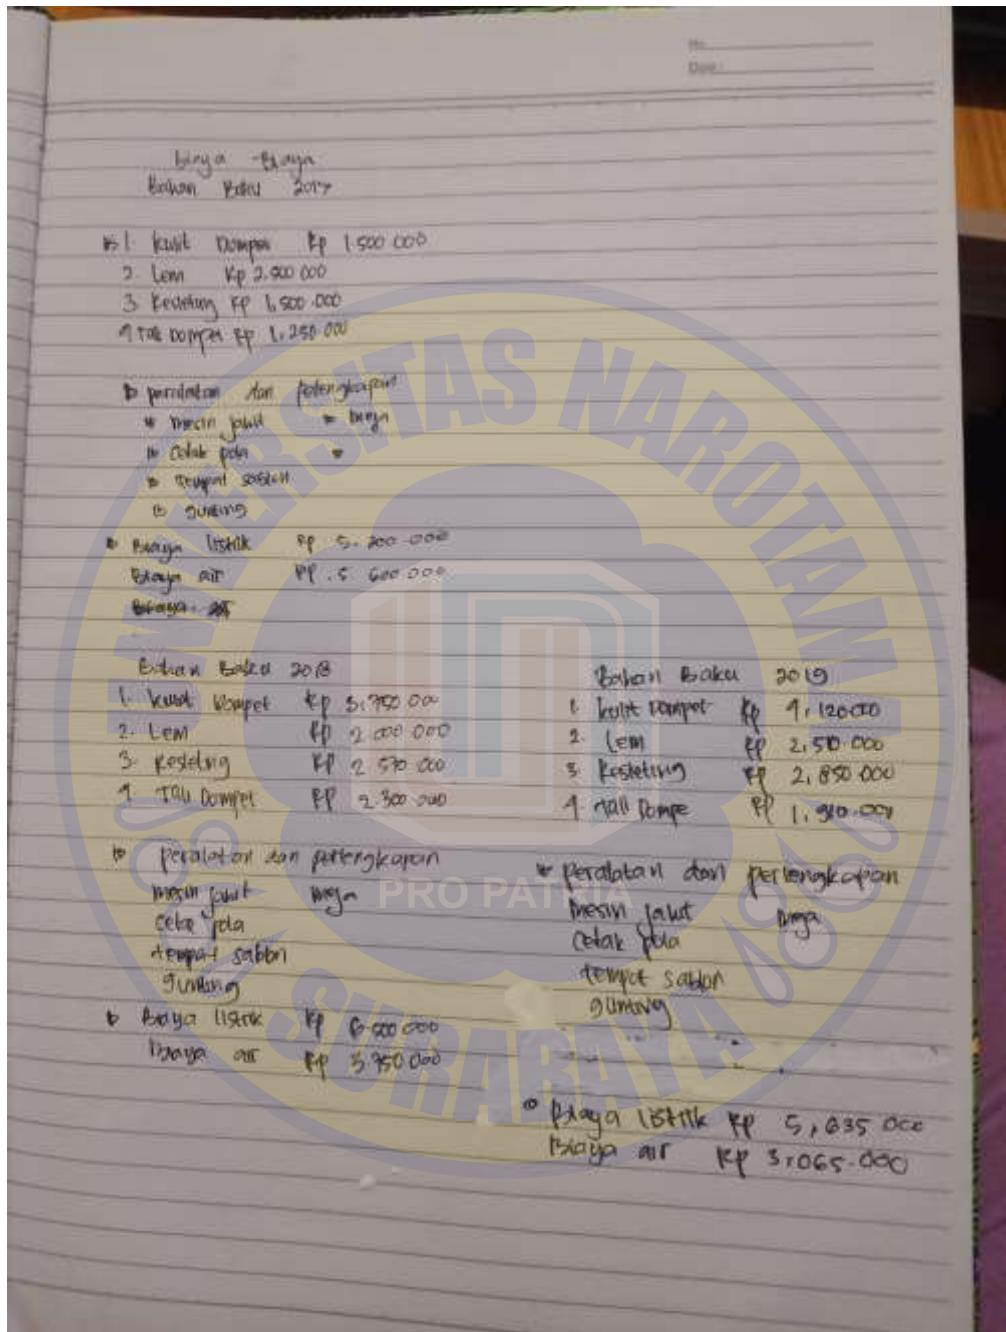 No.
Date:
Biaya - Biaya
Bahan Baku 2017
1. kulit Dompet Rp 1.500.000
2. Lem Rp 2.500.000
3. Resleting Rp 1.500.000
4 Tali Dompet Rp 1.250.000
peralatan dan perlengkapan
mesin jahit meja
Cetak pola
tempat sablon
gunting
Biaya listrik Rp 5.200.000
Biaya air Rp. 5.600.000
Bahan Baku 2018
1. kulit Dompet Rp 3.750.000
2. Lem Rp 2.000.000
3. Resleting Rp 2.570.000
4 Tali Dompet Rp 2.300.000
peralatan dan perlengkapan
mesin jahit meja
cetak pola
tempat sablon
gunting
Biaya listrik Rp 6.500.000
Biaya air Rp 3.750.000
Bahan Baku 2019
1. kulit Dompet Rp 4.120.000
2. Lem Rp 2.510.000
3. Resleting Rp 2.850.000
4. Tali Dompe Rp
peralatan dan perlengkapan
mesin jahit meja
Cetak pola
tempat sablon
gunting
Biaya listrik Rp 5,635.000
Biaya air Rp 3,065.000
UNIVERSITAS NAROTAMA
PRO PATRIA
SURABAYA